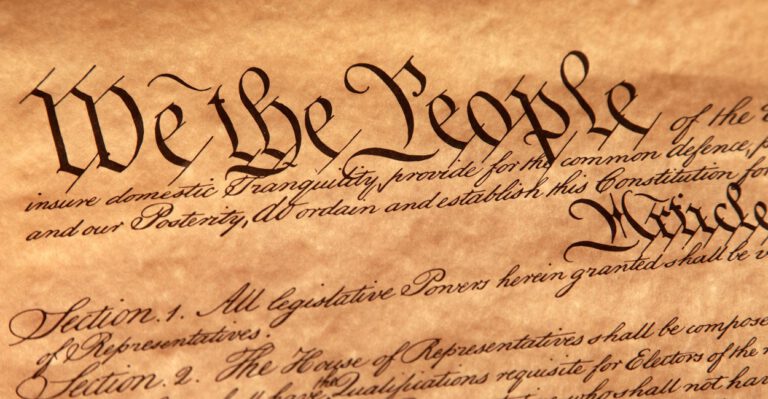 We the People of the
insure domestic Tranquility, provide for the common defence,
and our Posterity, do ordain and establish this Constitution for
Article
Section. 1. All legislative Powers herein granted shall be
of Representatives.
Section. 2. The House of Representatives shall be compose
the
have Qualifications requisite for Electors of the
who shall not hav